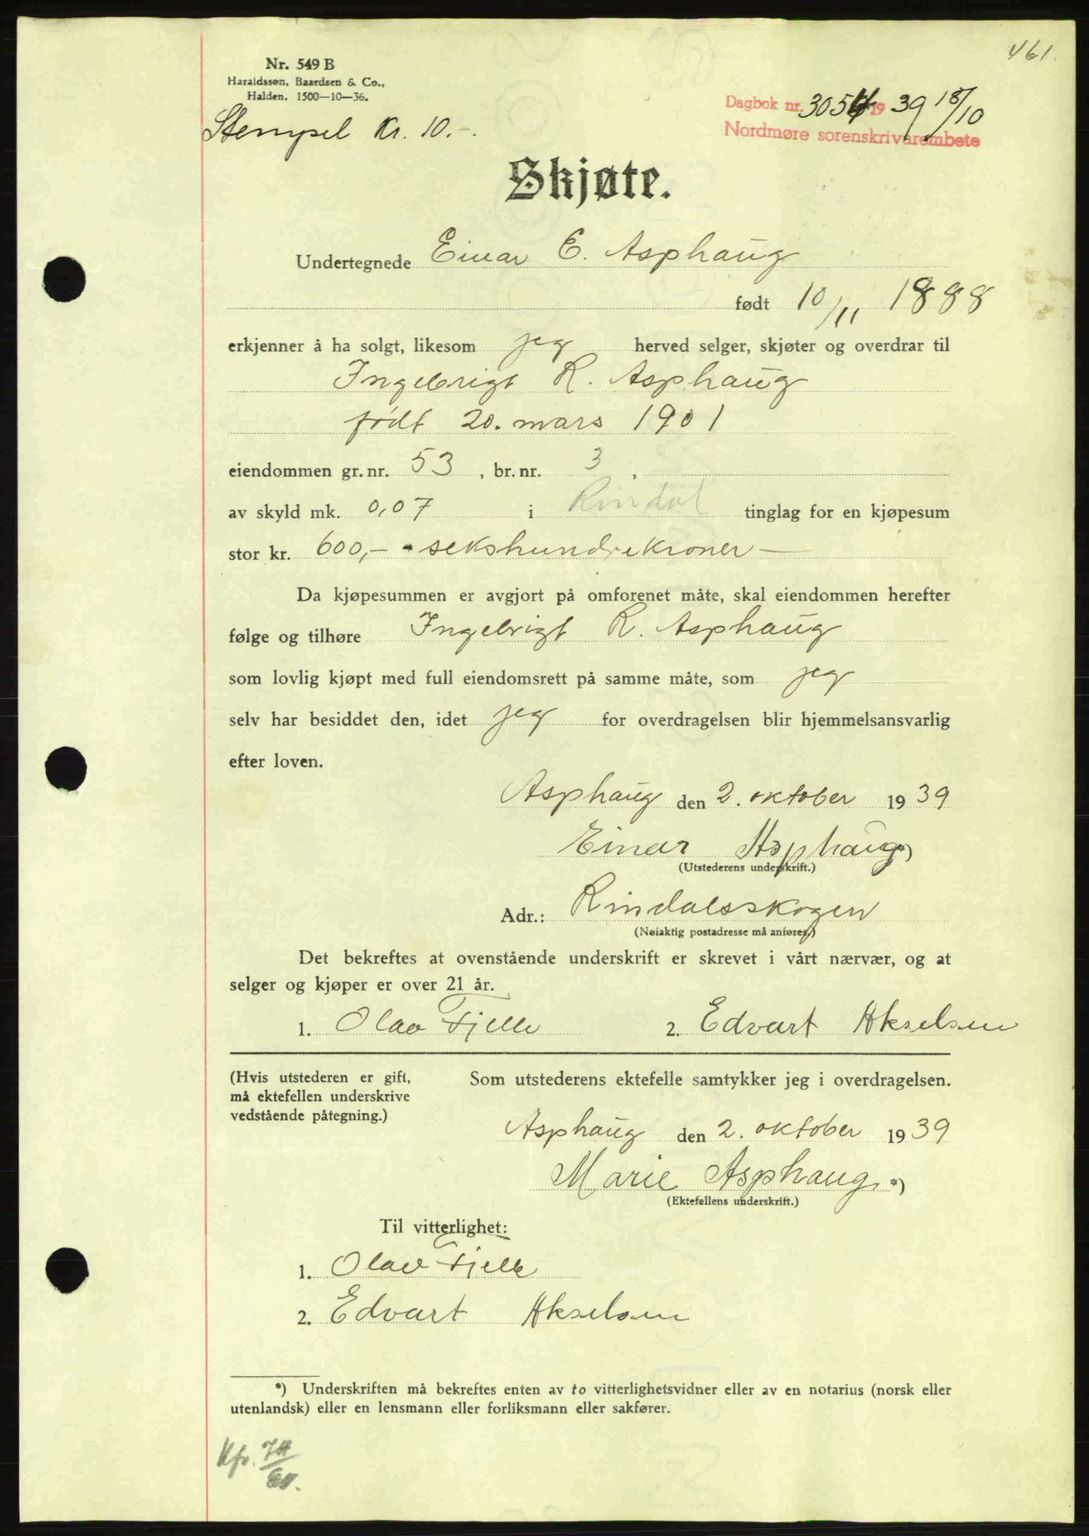 461.
Nr. 549 B
Haraldssen, Baardsen & Co.,
Halden. 1500—10—36.
Stempel Kr. 10.-.
Dagbok nr. 3054 19 39 18/10
Nordmøre sorenskrivarembete
Skjøte.
Undertegnede Einar E. Asphaug
født 10/11 1888
erkjenner å ha solgt, likesom jeg herved selger, skjøter og overdrar til
Ingebrigt R. Asphaug
født 20. mars 1901
eiendommen gr. nr. 53, br. nr. 3.
av skyld mk. 0,07 i Rindal tinglag for en kjøpesum
stor kr. 600,- - sekshundrekroner —
Da kjøpesummen er avgjort på omforenet måte, skal eiendommen herefter
følge og tilhøre Ingebrigt R. Asphaug
som lovlig kjøpt med full eiendomsrett på samme måte, som jeg
selv har besiddet den, idet jeg for overdragelsen blir hjemmelsansvarlig
efter loven.
Asphaug den 2. oktober 1939
Einar Asphaug *)
(Utstederens underskrift.)
Adr.: Rindalsskogen
(Nøiaktig postadresse må anføres.)
Det bekreftes at ovenstående underskrift er skrevet i vårt nærvær, og at
selger og kjøper er over 21 år.
1. Olav Fjelle 2. Edvart Akselsen
(Hvis utstederen er gift,
må ektefellen underskrive
vedstående påtegning.)
Som utstederens ektefelle samtykker jeg i overdragelsen.
Asphaug den 2. oktober 1939
Marie Asphaug *)
(Ektefellens underskrift.)
Til vitterlighet:
1. Olav Fjelle
2. Edvart Akselsen
*) Underskriften må bekreftes enten av to vitterlighetsvidner eller av en notarius (norsk eller
utenlandsk) eller en lensmann eller forliksmann eller sakfører.